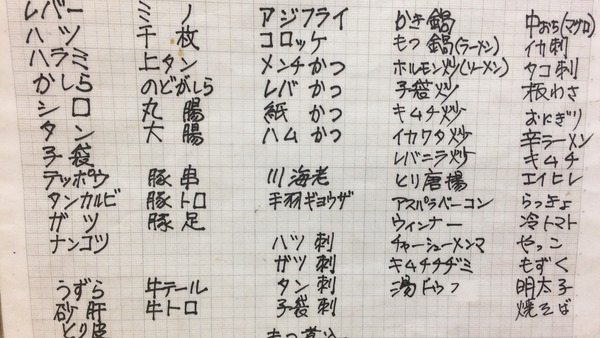 レバー
ハツ
ハラミ
かしら
シロ
タン
子袋
テッポウ
タンカルビ
ガツ
ナンコツ
うずら
砂肝
とり皮
ミノ
千枚
上タン
のどがしら
丸腸
大腸
豚串
豚トロ
豚足
牛テール
牛トロ
アジフライ
コロッケ
メンチかつ
レバかつ
紙かつ
ハムかつ
川海老
手羽ギョウザ
ハツ刺
ガツ刺
タン刺
子袋刺
もつ煮込
かき鍋
もつ鍋(ラーメン)
ホルモン炒(ソーメン)
子袋炒
キムチ炒
イカワタ炒
レバニラ炒
とり唐揚
アスパラベーコン
ウィンナー
チャーシューメンマ
キムチチヂミ
湯ドウフ
中おち(マグロ)
イカ刺
タコ刺
板わさ
おにぎり
辛ラーメン
キムチ
エイヒレ
らっきょ
冷トマト
やっこ
もずく
明太子
焼そば